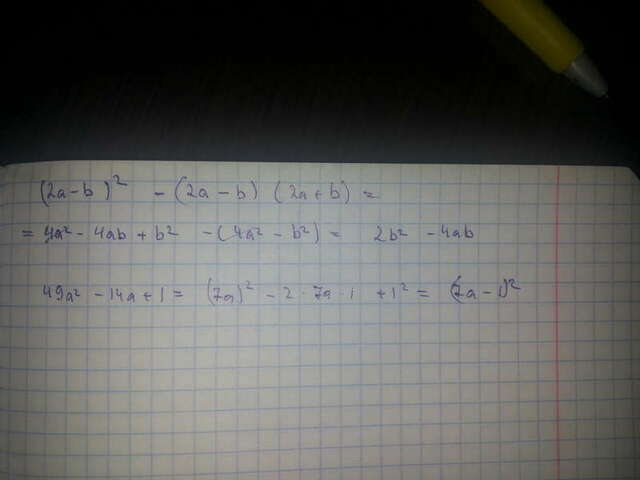 (2a-b)² - (2a-b) (2a+b) =
= 4a² - 4ab + b² - (4a² - b²) = 2b² - 4ab
49a² - 14a + 1 = (7a)² - 2 · 7a · 1 + 1² = (7a - 1)²